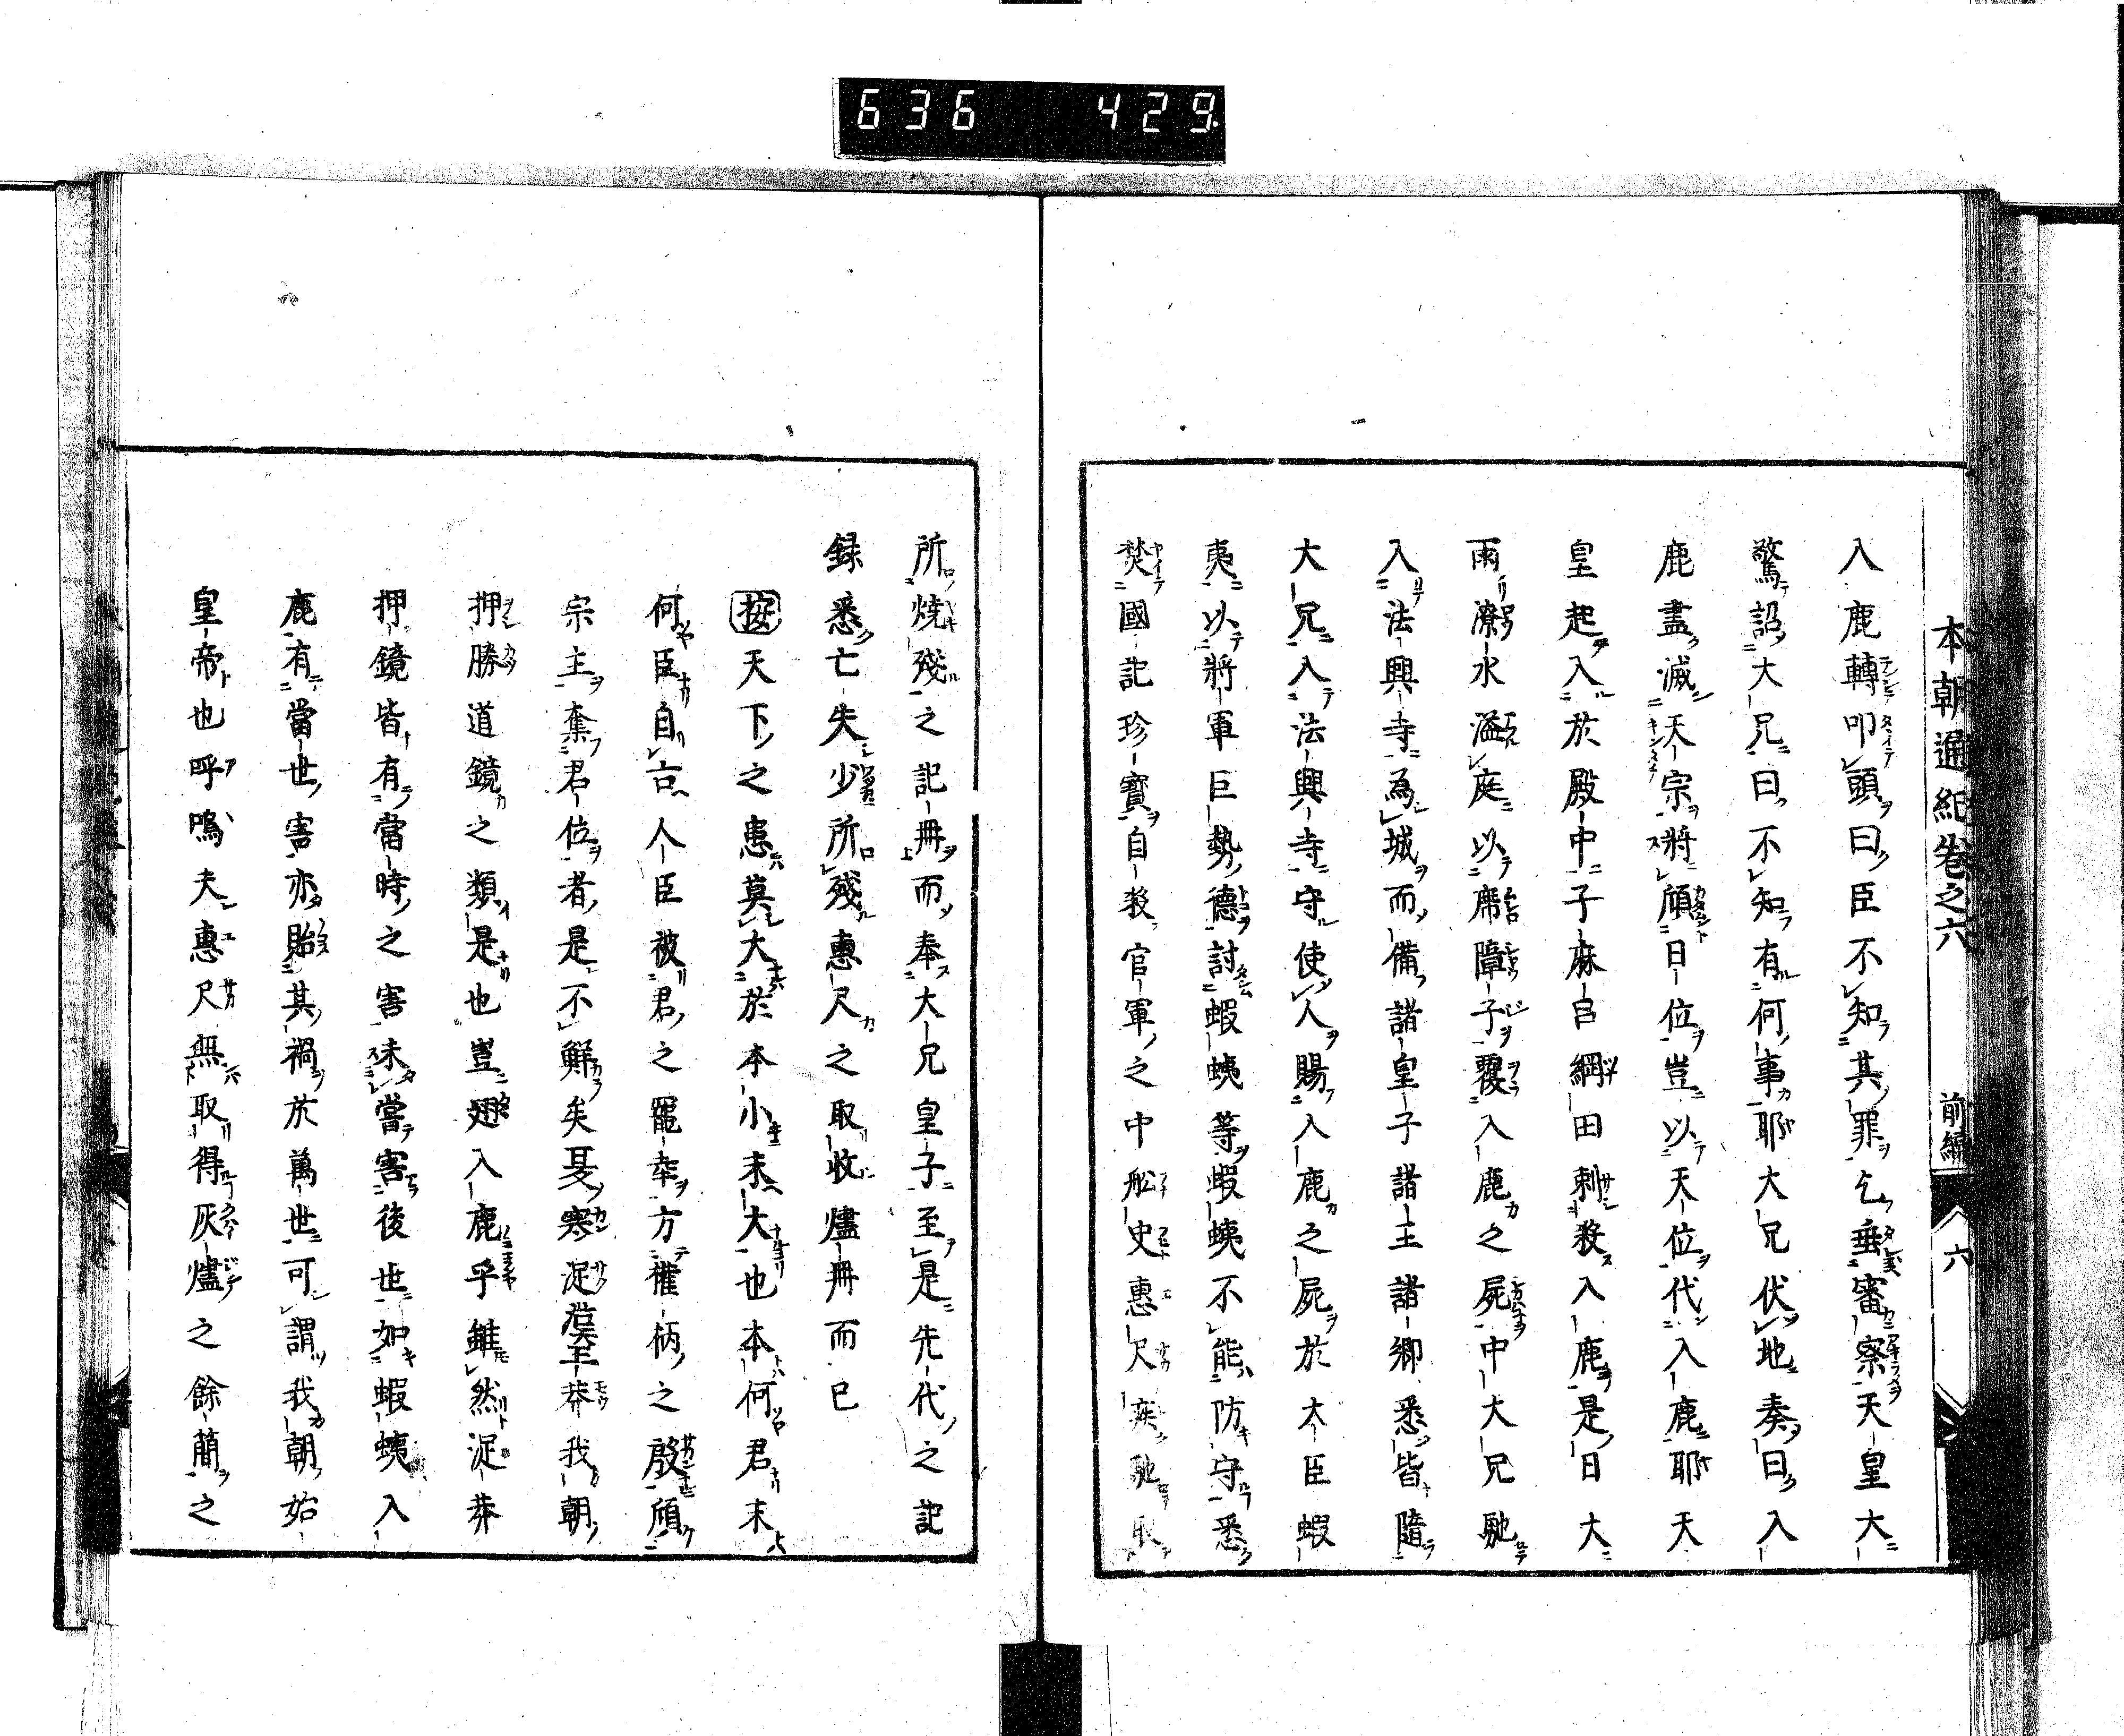 636 429
本朝通紀卷之六 前編 六
入鹿轉叩頭曰臣不知其罪乞垂審察天皇大
驚詔大兄曰不知有何事耶大兄伏地奏曰入
鹿盡滅天宗將傾日位豈以天位代入鹿耶天
皇起入於殿中子麻呂綱田刺殺入鹿是日大
雨潦水溢庭以席障子覆入鹿之屍中大兄馳
入法興寺為城而備諸皇子諸王諸卿悉皆隨
大兄入法興寺守使人賜入鹿之屍於大臣蝦
夷以將軍巨勢德討蝦蛦等蝦蛦不能防守悉
焚國記珍寶自殺官軍之中舩史惠尺疾馳取
所燒殘之記冊而奉大兄皇子至是先代之記
録悉亡失少所殘惠尺之取收燼冊而已
按天下之患莫大於本小末大也本何君末
何臣自古人臣被君之寵幸方權柄之殷傾
宗主奪君位者是不鮮矣夏寒浞漢王莽我朝
押勝道鏡之類是也豈翅入鹿乎雖然浞莽
押鏡皆有當時之害未嘗害後世如蝦蛦入
鹿有當世害亦貽其禍於萬世可謂我朝始
皇帝也呼嗚夫惠尺無取得灰燼之餘簡之